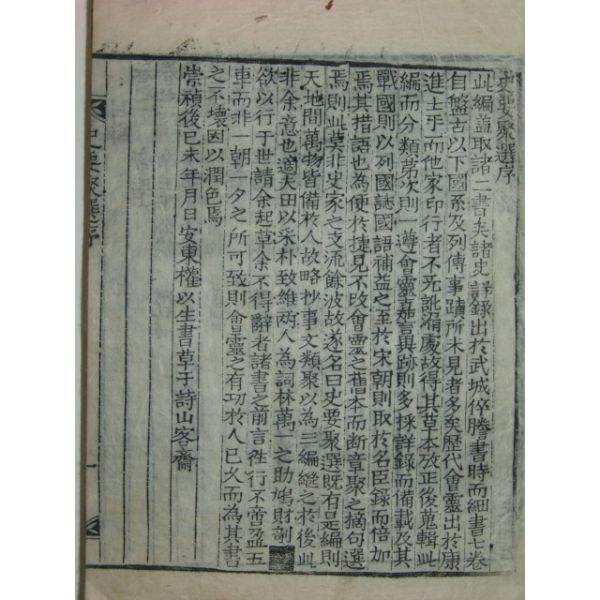 史要聚選序
此編盖取諸二書矣諸史詳錄出於武城倅謄書時而細書七卷
自盤古以下國系及列傳事蹟所未見者多矣歷代會靈出於康
進士乎而他家印行者不死訛漏處故得其草本攷正後蒐輯此
編而分類第次則一遵會靈嘉言異跡則多採詳錄而備載及其
戰國則以列國誌國語補益之至於宋朝則取於名臣錄而倍加
焉其措語也為便於捷見不改會靈之舊本而斷章聚之摘句選
焉則此莫非史家之支流餘波故遂名曰史要聚選既有是編則
天地間萬物皆備於人故略抄事文類聚以為三編縫之於後此
非余意也適夫田以采朴致維兩人為詞林萬一之助鳩財剞
欲以行于世請余起草余不得辭者諸書之前言徃行不啻盈五
車而非一朝一夕之所可致則會靈之有功於人已久而為其書
之不壞因以潤色焉
崇禎後己未年月日安東權以生書草于詩山客齋
史要聚選序
一